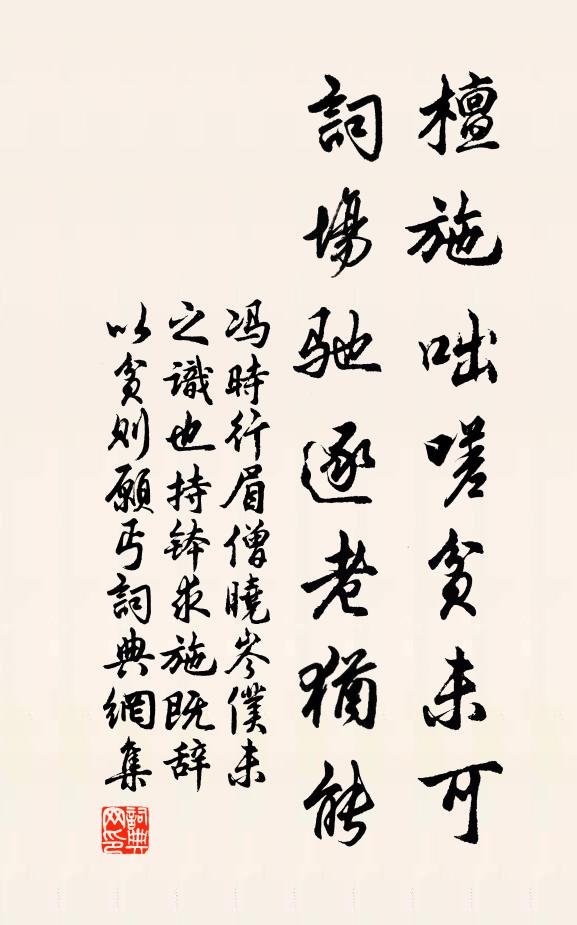 檀施咄嗟貧未可
詞場馳逐老猶能
冯時行眉僧曉岑僕未
之識也持鉢求施既辞
以貧则願丐詞典網集
詞典网印